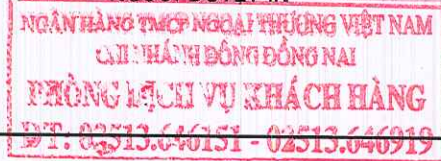 NGÂN HÀNG TMCP NGOẠI THƯƠNG VIỆT NAM
CHI NHÁNH ĐÔNG ĐỒNG NAI
PHÒNG DỊCH VỤ KHÁCH HÀNG
ĐT: 02513.646151 - 02513.646919